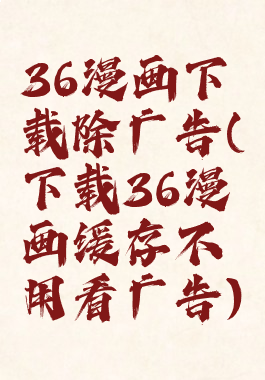 36漫画下
载除广告(
下载36漫
画缓存不
用看广告)